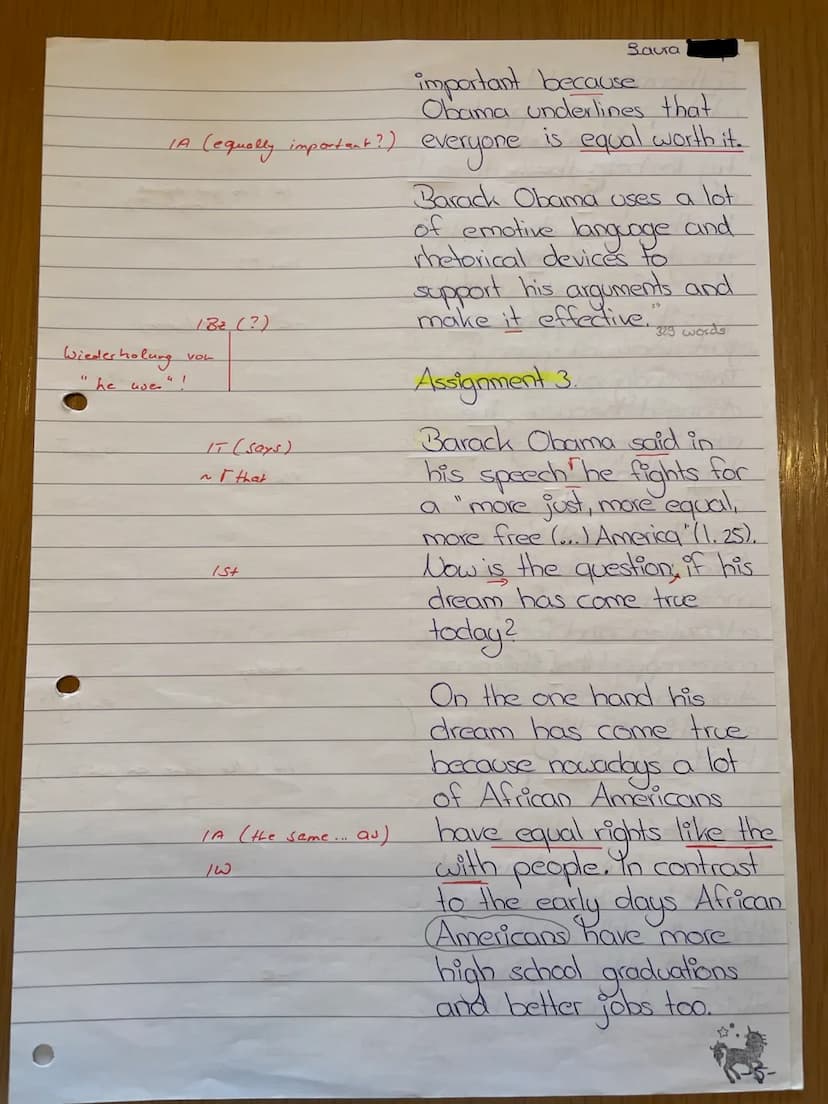 Laura
important because
Obama underlines that
1A (equally important?) everyone is equal worth it.
Barack Obama uses a lot
of emotive language and
rhetorical devices to
support his arguments and
1Bz (?) make it effective."
329 words
Wiederholung von
"he uses"!
Assignment 3.
1T (says) Barack Obama said in
~ Γ that his speech Γ he fights for
a "more just, more equal,
more free (...) America" (l. 25).
1St Now is the question, if his
dream has come true
today?
On the one hand his
dream has come true
because nowadays a lot
of African Americans
1A (the same ... as) have equal rights like the
1W with people. In contrast
to the early days African
Americans have more
high school graduations
and better jobs too.
-5-